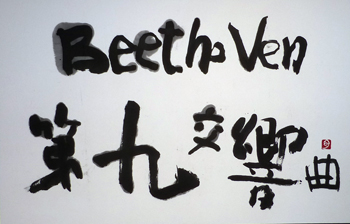 Beethoven
第九交響曲